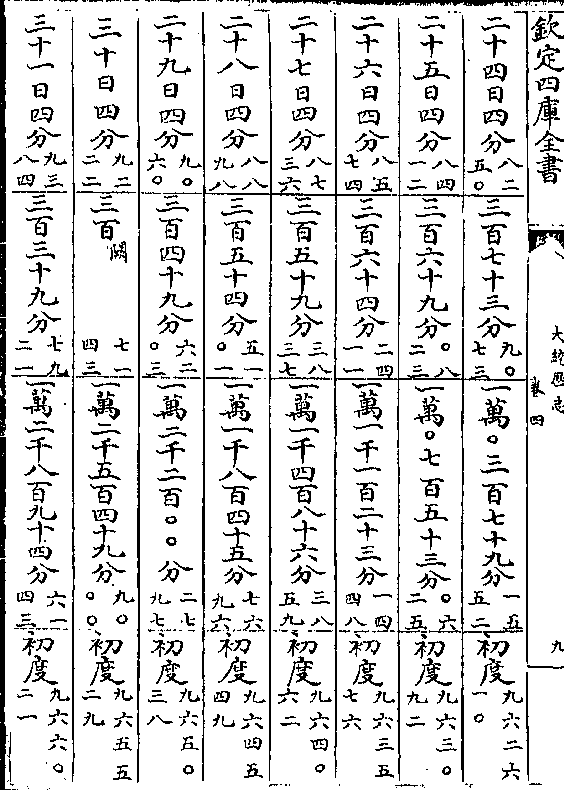 欽定四庫全書
大統歷志
卷四
九
二十四日四分八二五〇 三百七十三分九〇七三 一萬〇三百七十九分一五五二 初度九六二六一〇
二十五日四分八四一二 三百六十九分〇八二三 一萬〇七百五十三分〇六二五 初度九六三〇九二
二十六日四分八五七四 三百六十四分二四一一 一萬一千一百二十三分一四四八 初度九六三五七六
二十七日四分八七三六 三百五十九分三八三七 一萬一千四百八十六分三八五九 初度九六四〇六二
二十八日四分八八九八 三百五十四分五一〇一 一萬一千八百四十五分七六九六 初度九六四五四九
二十九日四分九〇六〇 三百四十九分六二〇三 一萬二千二百〇〇分二七九七 初度九六五〇三八
三十日四分九二二二 三百闕七一四三 一萬二千五百四十九分九〇〇〇 初度九六五五二九
三十一日四分九三八四 三百三十九分七九二一 一萬二千八百九十四分六一四三 初度九六六〇二一